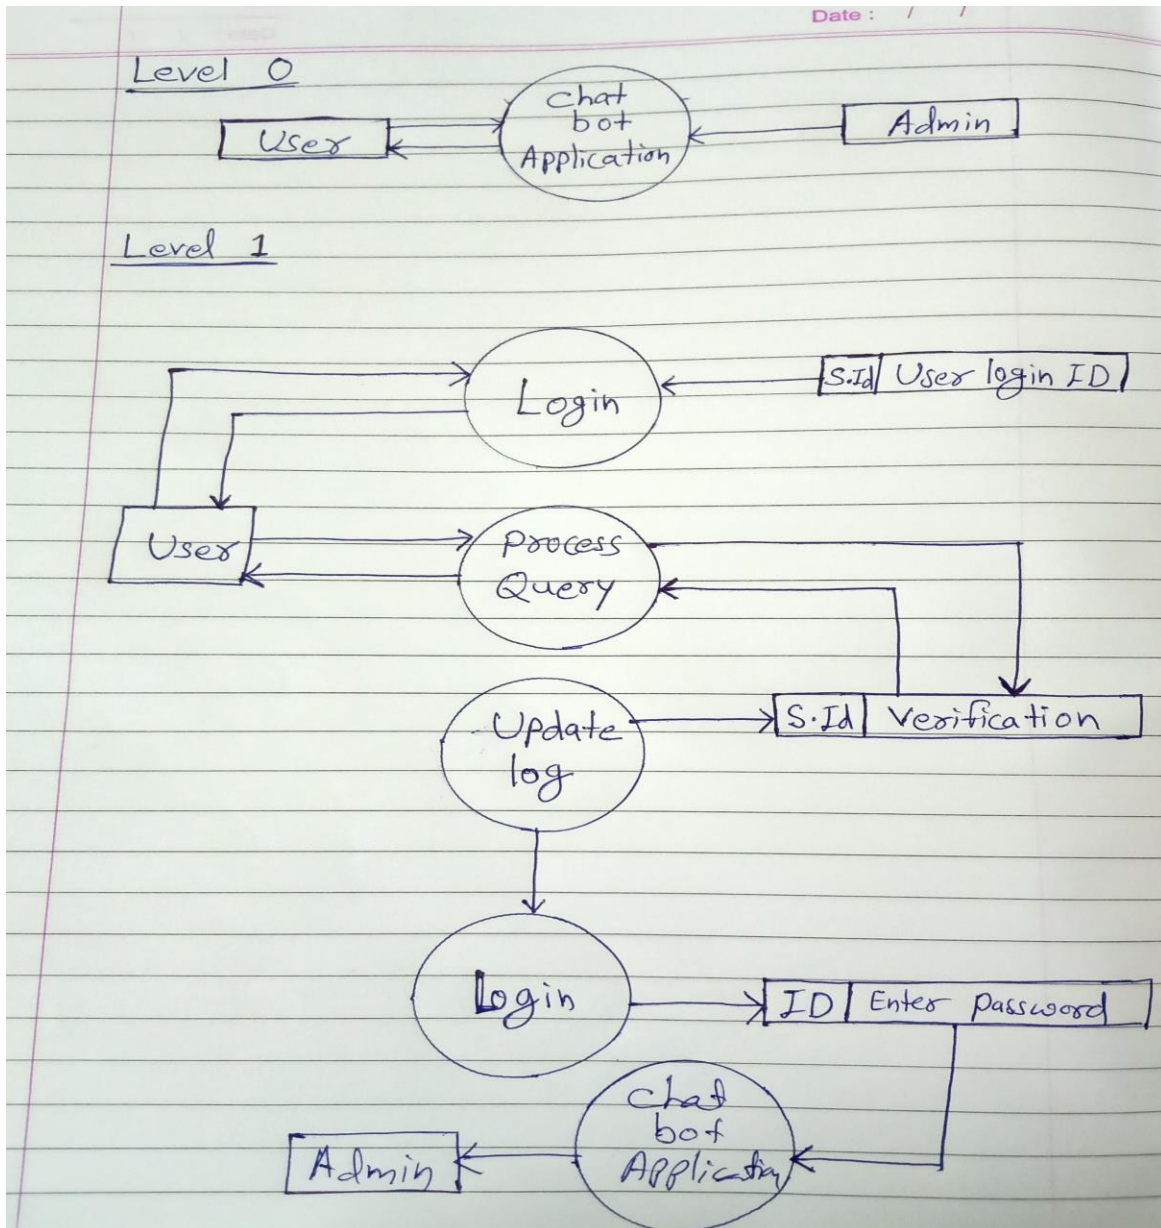 Date : / /
Level 0
User
Chat
bot
Application
Admin
Level 1
Login
S.Id User login ID
User
Process
Query
Update
log
S.Id Verification
Login
ID Enter password
Chat
bot
Application
Admin